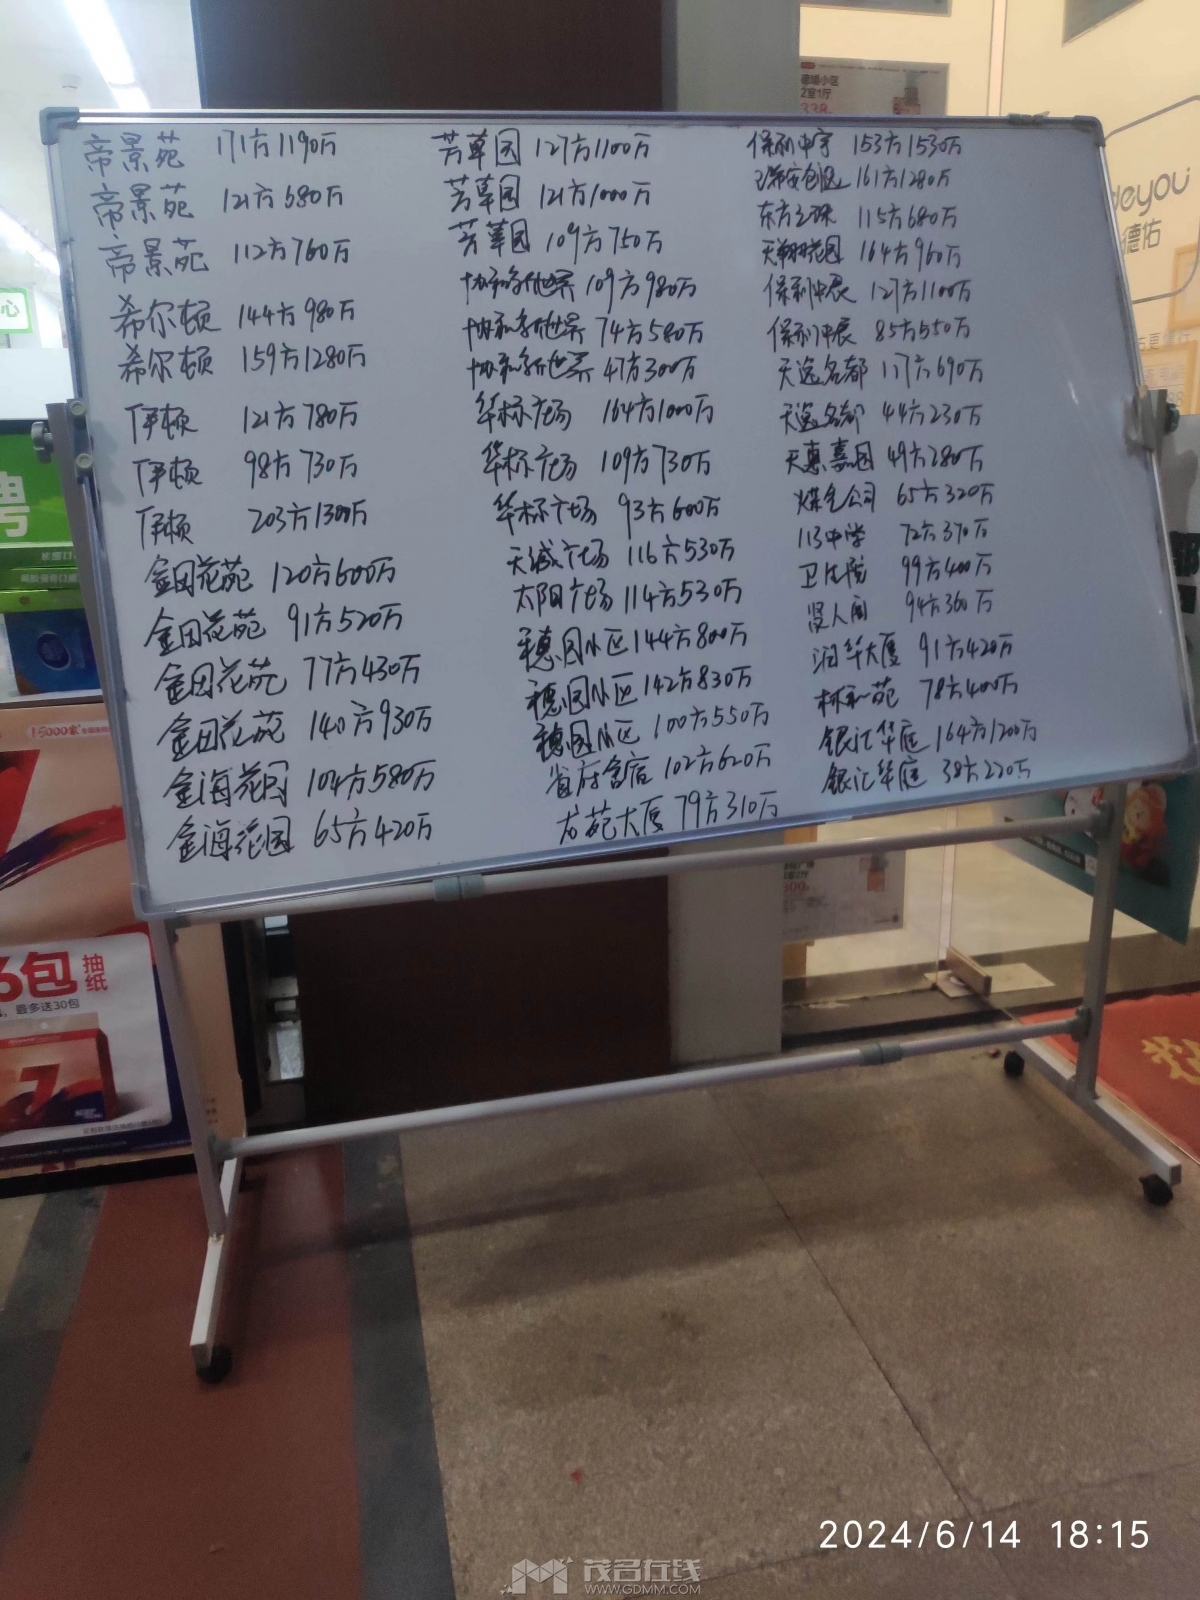 帝景苑 171方1190万
帝景苑 121方680万
帝景苑 112方760万
希尔顿 144方980万
希尔顿 159方1280万
伊顿 121方780万
伊顿 98方730万
伊顿 203方1300万
金田花苑 120方600万
金田花苑 91方520万
金田花苑 77方430万
金田花苑 140方930万
金海花园 104方580万
金海花园 65方420万
芳草园 127方1100万
芳草园 121方1000万
芳草园 109方750万
协和新世界 109方980万
协和新世界 74方580万
协和新世界 47方300万
华标广场 164方1000万
华标广场 109方730万
华标广场 93方600万
天诚广场 116方530万
太阳广场 114方530万
穗园小区 144方800万
穗园小区 142方830万
穗园小区 100方550万
省府宿舍 102方620万
方苑大厦 79方310万
保利中宇 153方1530万
161方1280万
东方之珠 115方680万
天翔花园 164方960万
保利中展 127方1100万
保利中展 85方550万
天逸名都 117方690万
天逸名都 44方230万
天惠嘉园 49方280万
煤气公司 65方320万
113中学 72方370万
卫生院 99方400万
94方360万
润华大厦 91方420万
林和苑 78方400万
银汇华庭 164方1200万
银汇华庭 38方220万
德埔小区
2室1厅
338
deyou
德佑
心
聘
15000家
6包
抽纸
最多送30包
2024/6/14 18:15
茂名在线
WWW.GDMM.COM